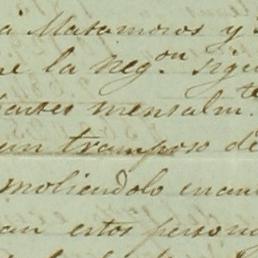 á Matamoros y
e la neg.on sigu
artes mensalm.te
un tramposo de
moliendolo enan
an estos person